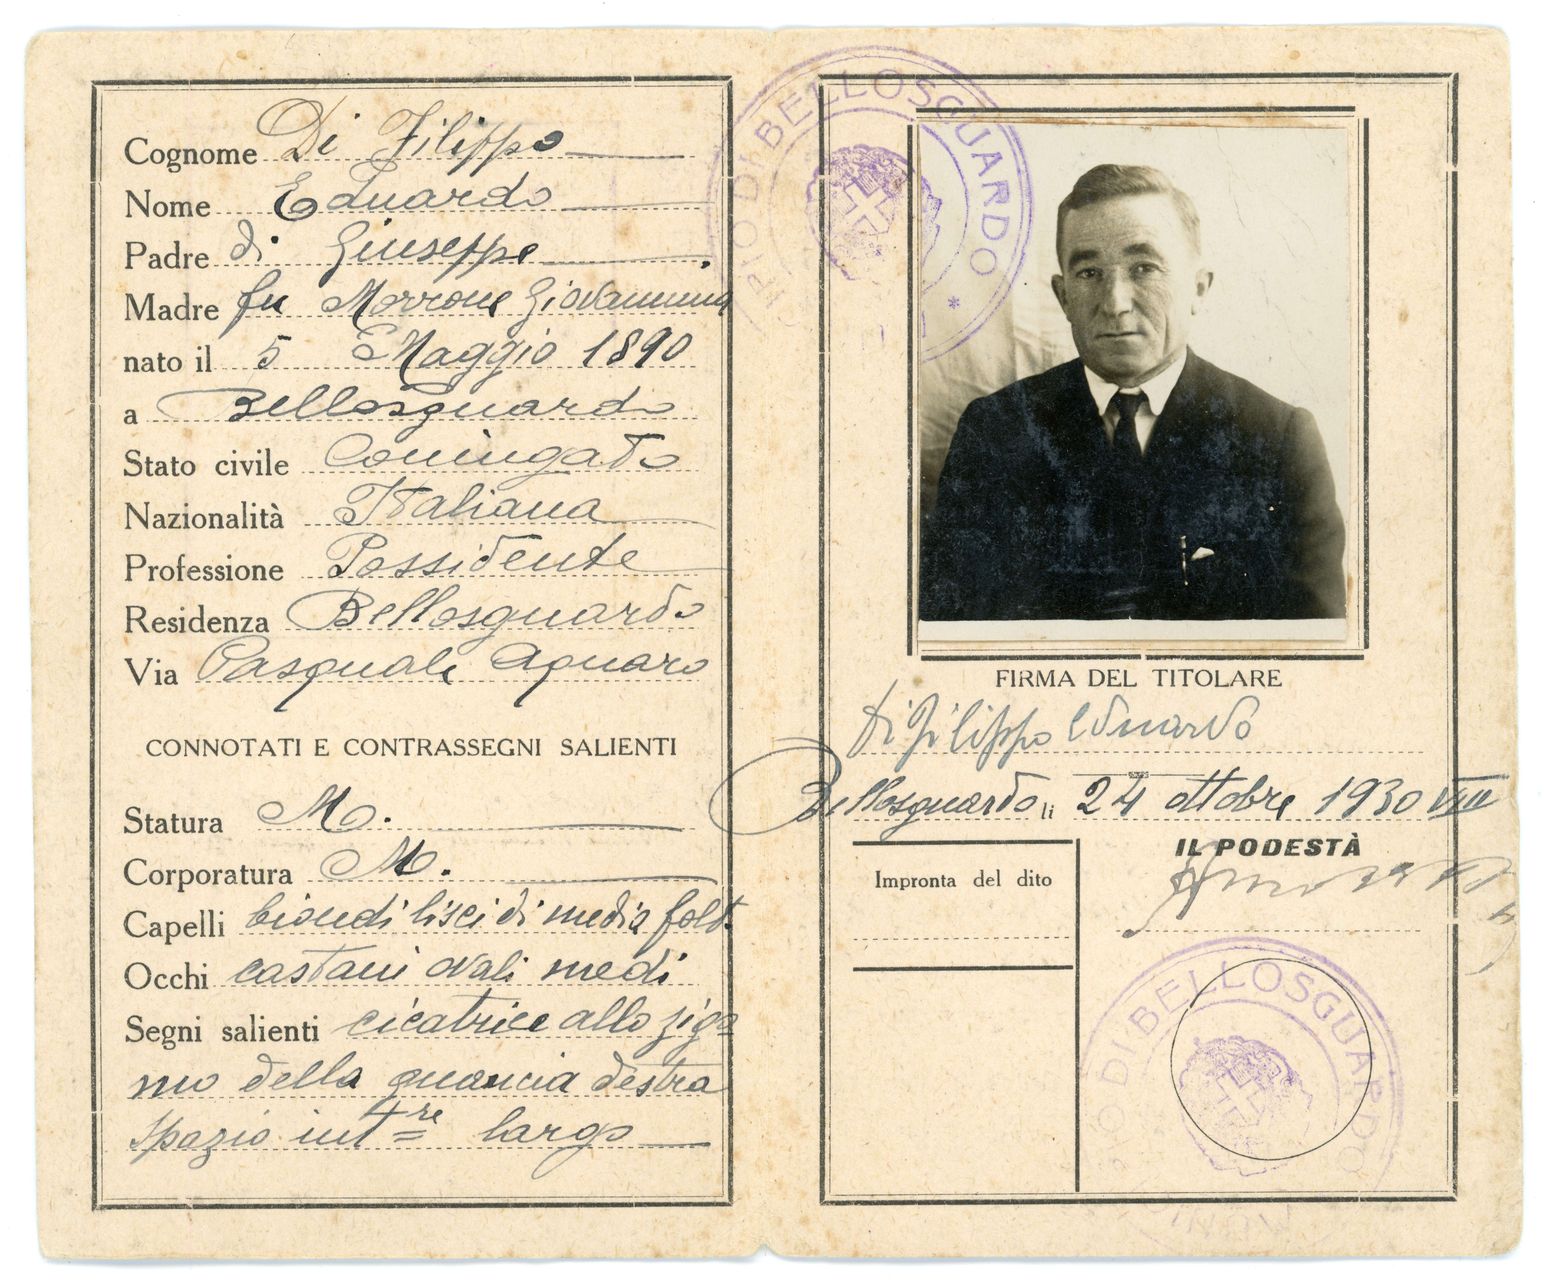 Cognome Di Filippo
Nome Eduardo
Padre di Giuseppe
Madre fu Morrone Giovannina
nato il 5 Maggio 1890
a Bellosguardo
Stato civile Coniugato
Nazionalità Italiana
Professione Possidente
Residenza Bellosguardo
Via Pasquale Aquaro
CONNOTATI E CONTRASSEGNI SALIENTI
Statura M.
Corporatura M.
Capelli biondi lisci di media folt.
Occhi castani ovali medi
Segni salienti cicatrice allo zigo
mo della guancia destra
spazio int4re largo
IPIO DI BELLOSGUARDO *
FIRMA DEL TITOLARE
Di Filippo Eduardo
Bellosguardo li 24 ottobre 1930 VIII
IL PODESTÀ
Impronta del dito
IO DI BELLOSGUARDO
MUNI